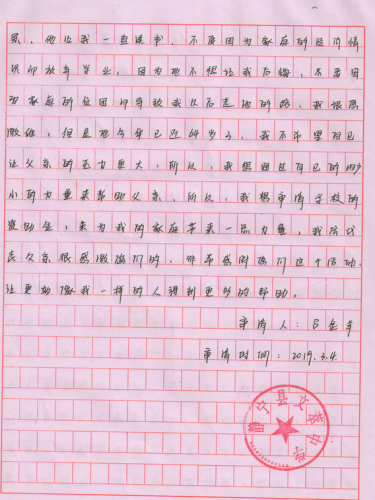 累，他让我一直读书，不要因为家庭的经济情
况而放弃学业，因为他不想让我后悔，不要因
为家庭的贫困而导致我以后走他的路，我很感
激他，但是他今年已近64岁了，我不希望自己
让父亲的压力重大，所以，我想通过自己的
小的力量来帮助父亲，所以，我想申请学校的
资助金，来为我的家庭带来一点力量，我
父亲很感激你们的，非常感谢你们这个活动，
让更多像我一样的人得到更多的帮助。
申请人：吕
申请时间：2019.3.4.
静宁县文萃中学